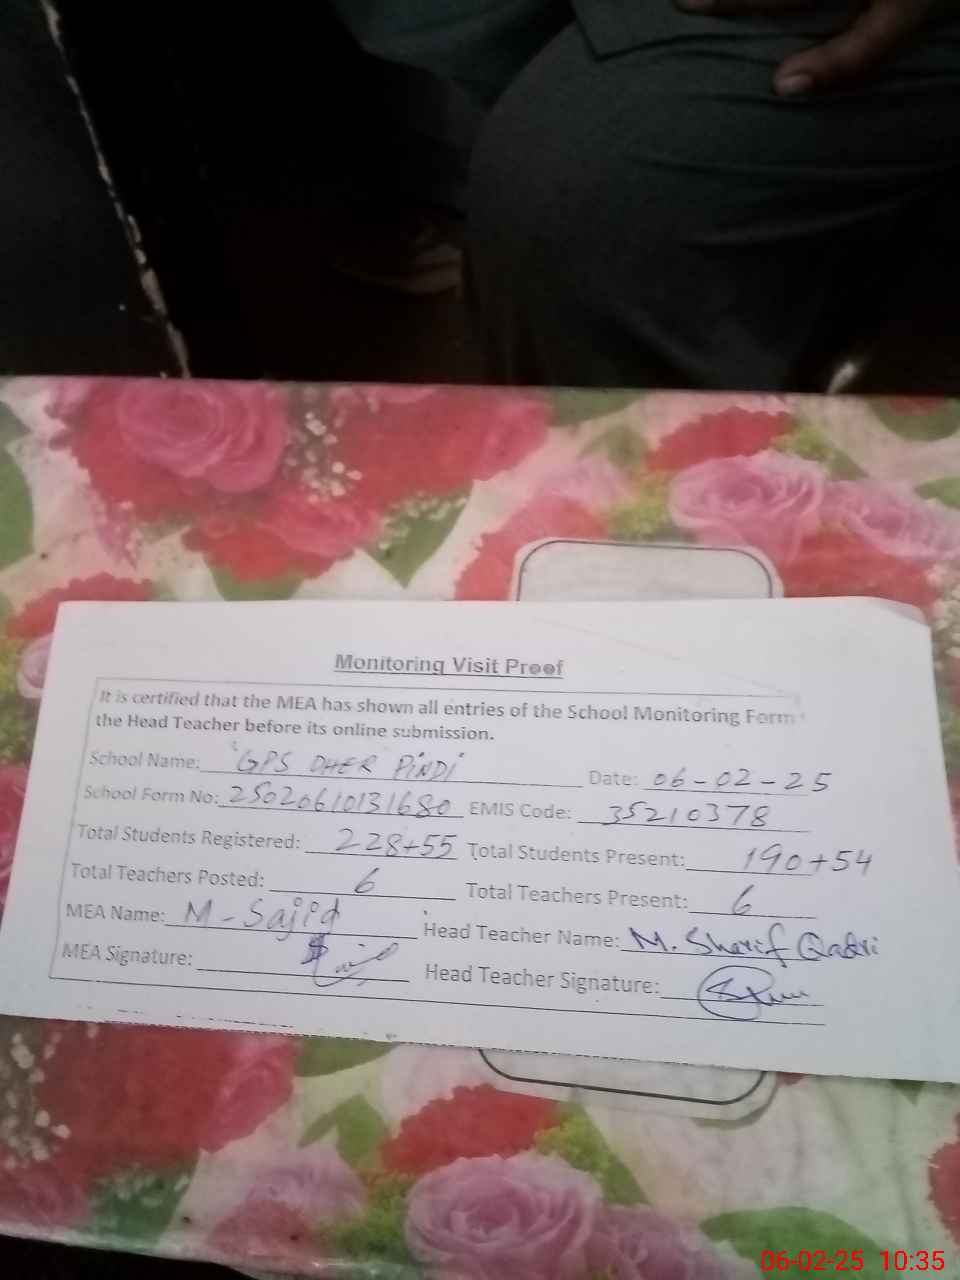 Monitoring Visit Proof
It is certified that the MEA has shown all entries of the School Monitoring Form
the Head Teacher before its online submission.
School Name: GPS DHER PINDI Date: 06-02-25
School Form No: 25020610131680 EMIS Code: 35210378
Total Students Registered: 228+55 Total Students Present: 190+54
Total Teachers Posted: 6 Total Teachers Present: 6
MEA Name: M-Sajid Head Teacher Name: M. Sharif Qadri
MEA Signature: Head Teacher Signature:
06-02-25 10:35